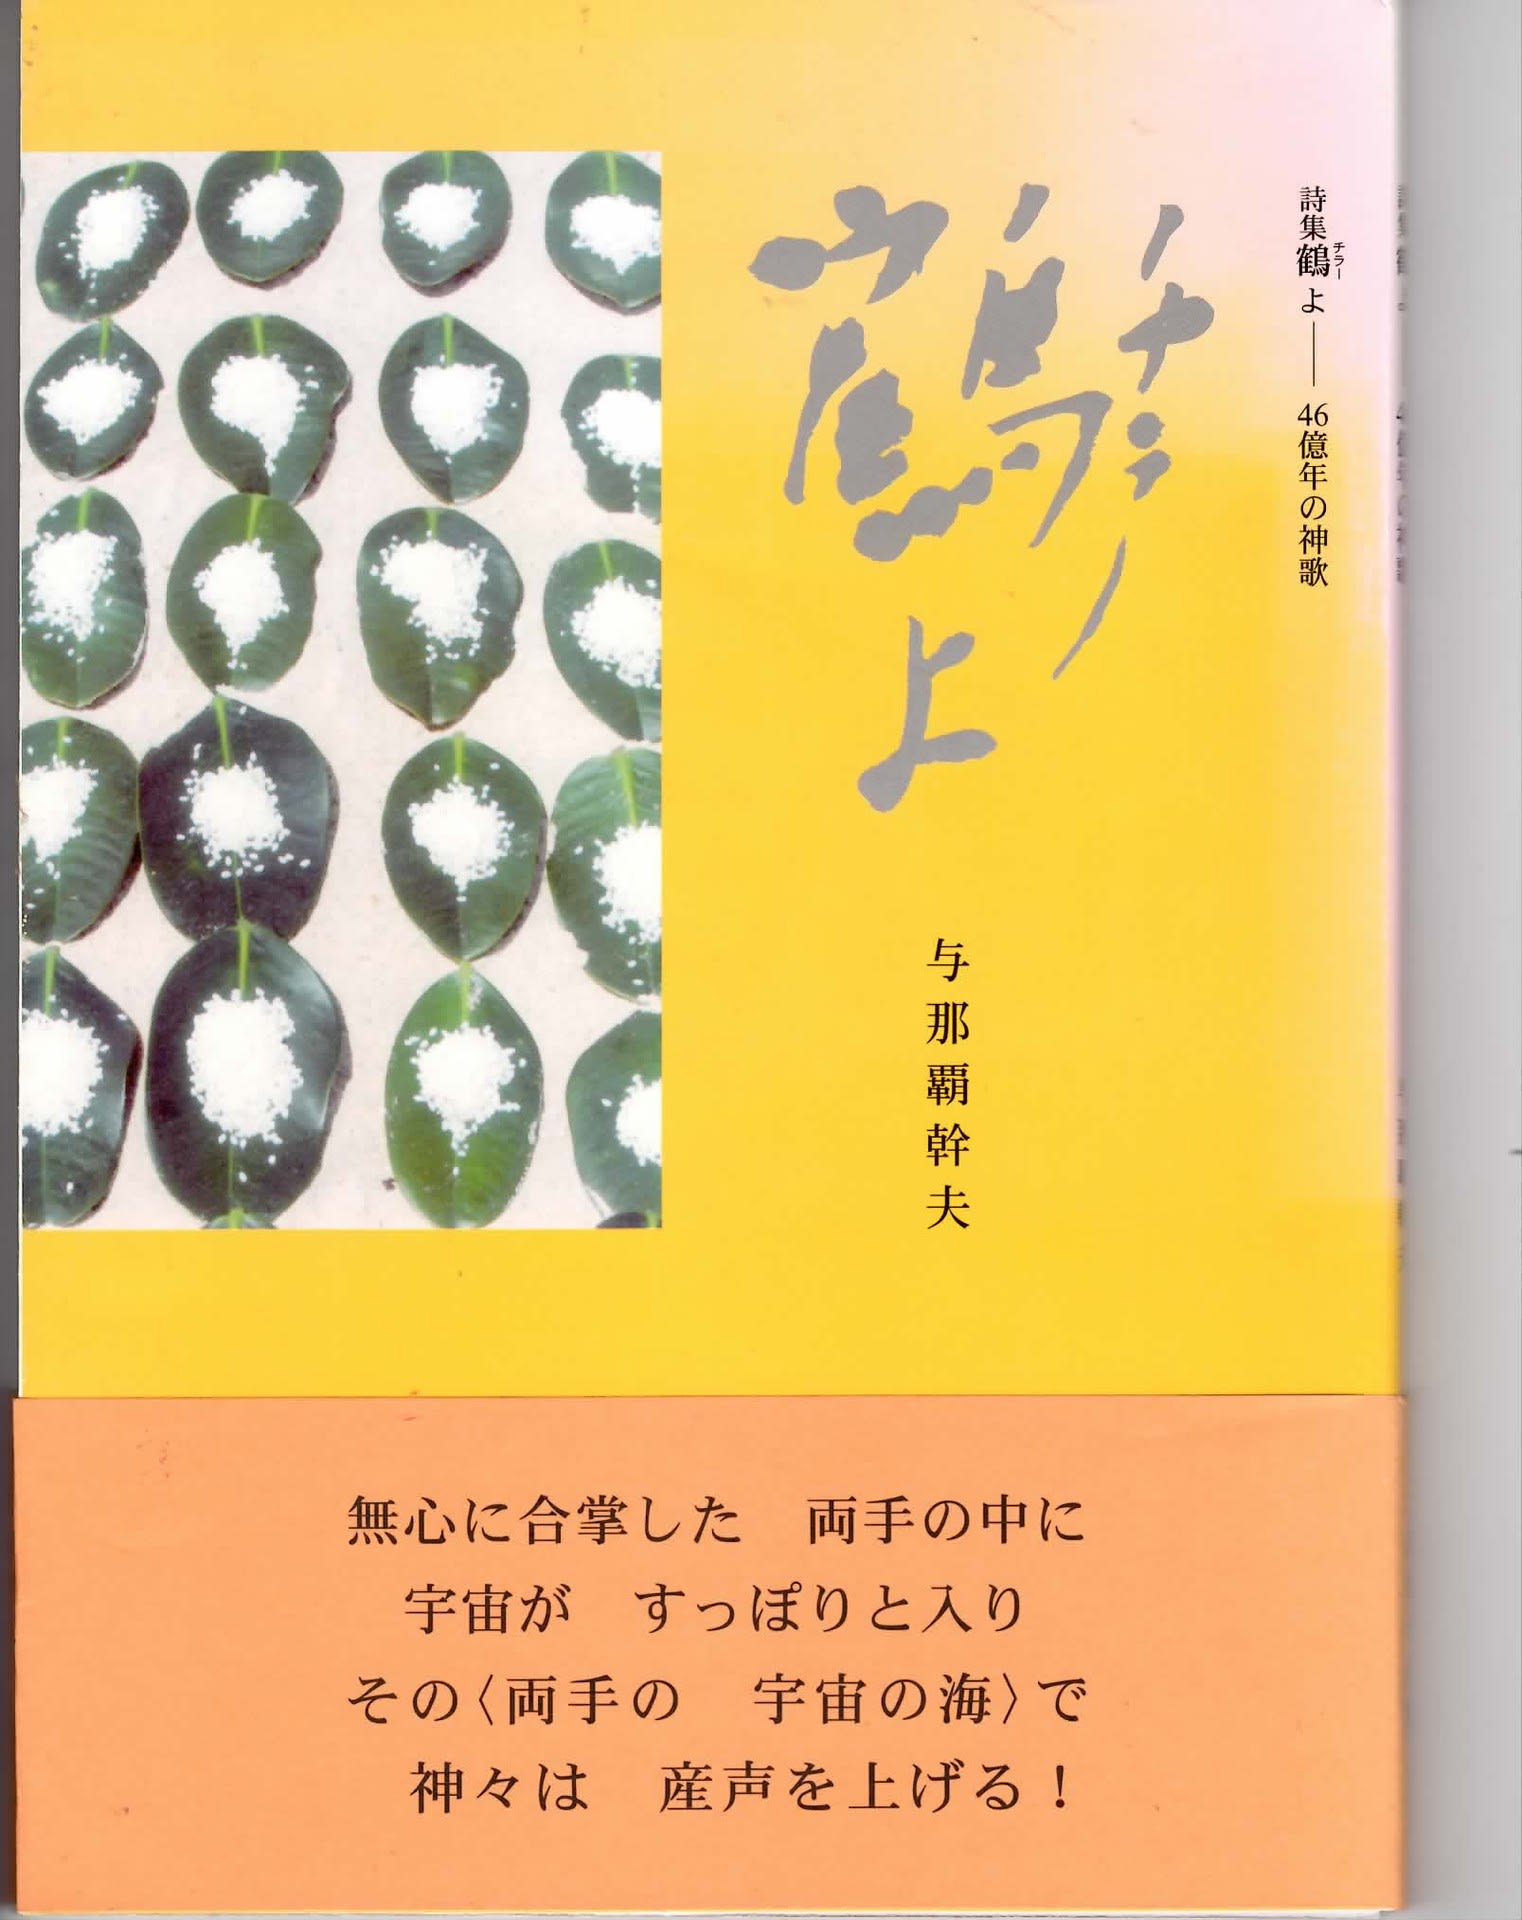 詩集鶴よ――46億年の神歌
チラー
鶴よ
チラー
与那覇幹夫
無心に合掌した　両手の中に
宇宙が　すっぽりと入り
その〈両手の　宇宙の海〉で
神々は　産声を上げる！